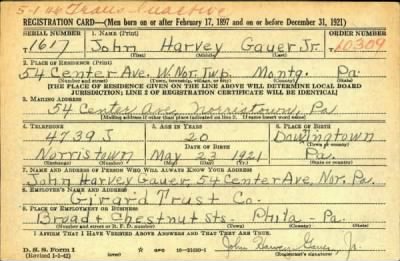 REGISTRATION CARD—(Men born on or after February 17, 1897 and on or before December 31, 1921)
SERIAL NUMBER 1. NAME (Print) ORDER NUMBER
T 617 John Harvey Gauer Jr. 10309
(First) (Middle) (Last)
2. PLACE OF RESIDENCE (Print)
54 Center Ave. W. Nor. Twp. Montg. Pa.
(Number and street) (Town, township, village, or city) (County) (State)
[THE PLACE OF RESIDENCE GIVEN ON THE LINE ABOVE WILL DETERMINE LOCAL BOARD
JURISDICTION; LINE 2 OF REGISTRATION CERTIFICATE WILL BE IDENTICAL]
3. MAILING ADDRESS
54 Center Ave Norristown, Pa
[Mailing address if other than place indicated on line 2. If same insert word same]
4. TELEPHONE 5. AGE IN YEARS 6. PLACE OF BIRTH
4739 J 20 Downingtown
DATE OF BIRTH (Town or county)
Norristown May 23 1921 Pa.
(Exchange) (Number) (Mo.) (Day) (Yr.) (State or country)
7. NAME AND ADDRESS OF PERSON WHO WILL ALWAYS KNOW YOUR ADDRESS
John Harvey Gauer, 54 Center Ave, Nor. Pa.
8. EMPLOYER'S NAME AND ADDRESS
Girard Trust Co.
9. PLACE OF EMPLOYMENT OR BUSINESS
Broad & Chestnut Sts - Phila - Pa.
(Number and street or R. F. D. number) (Town) (County) (State)
I AFFIRM THAT I HAVE VERIFIED ABOVE ANSWERS AND THAT THEY ARE TRUE.
D. S. S. Form 1
(Revised 1-1-42) GPO 16—21630-1 John Harvey Gauer, Jr.